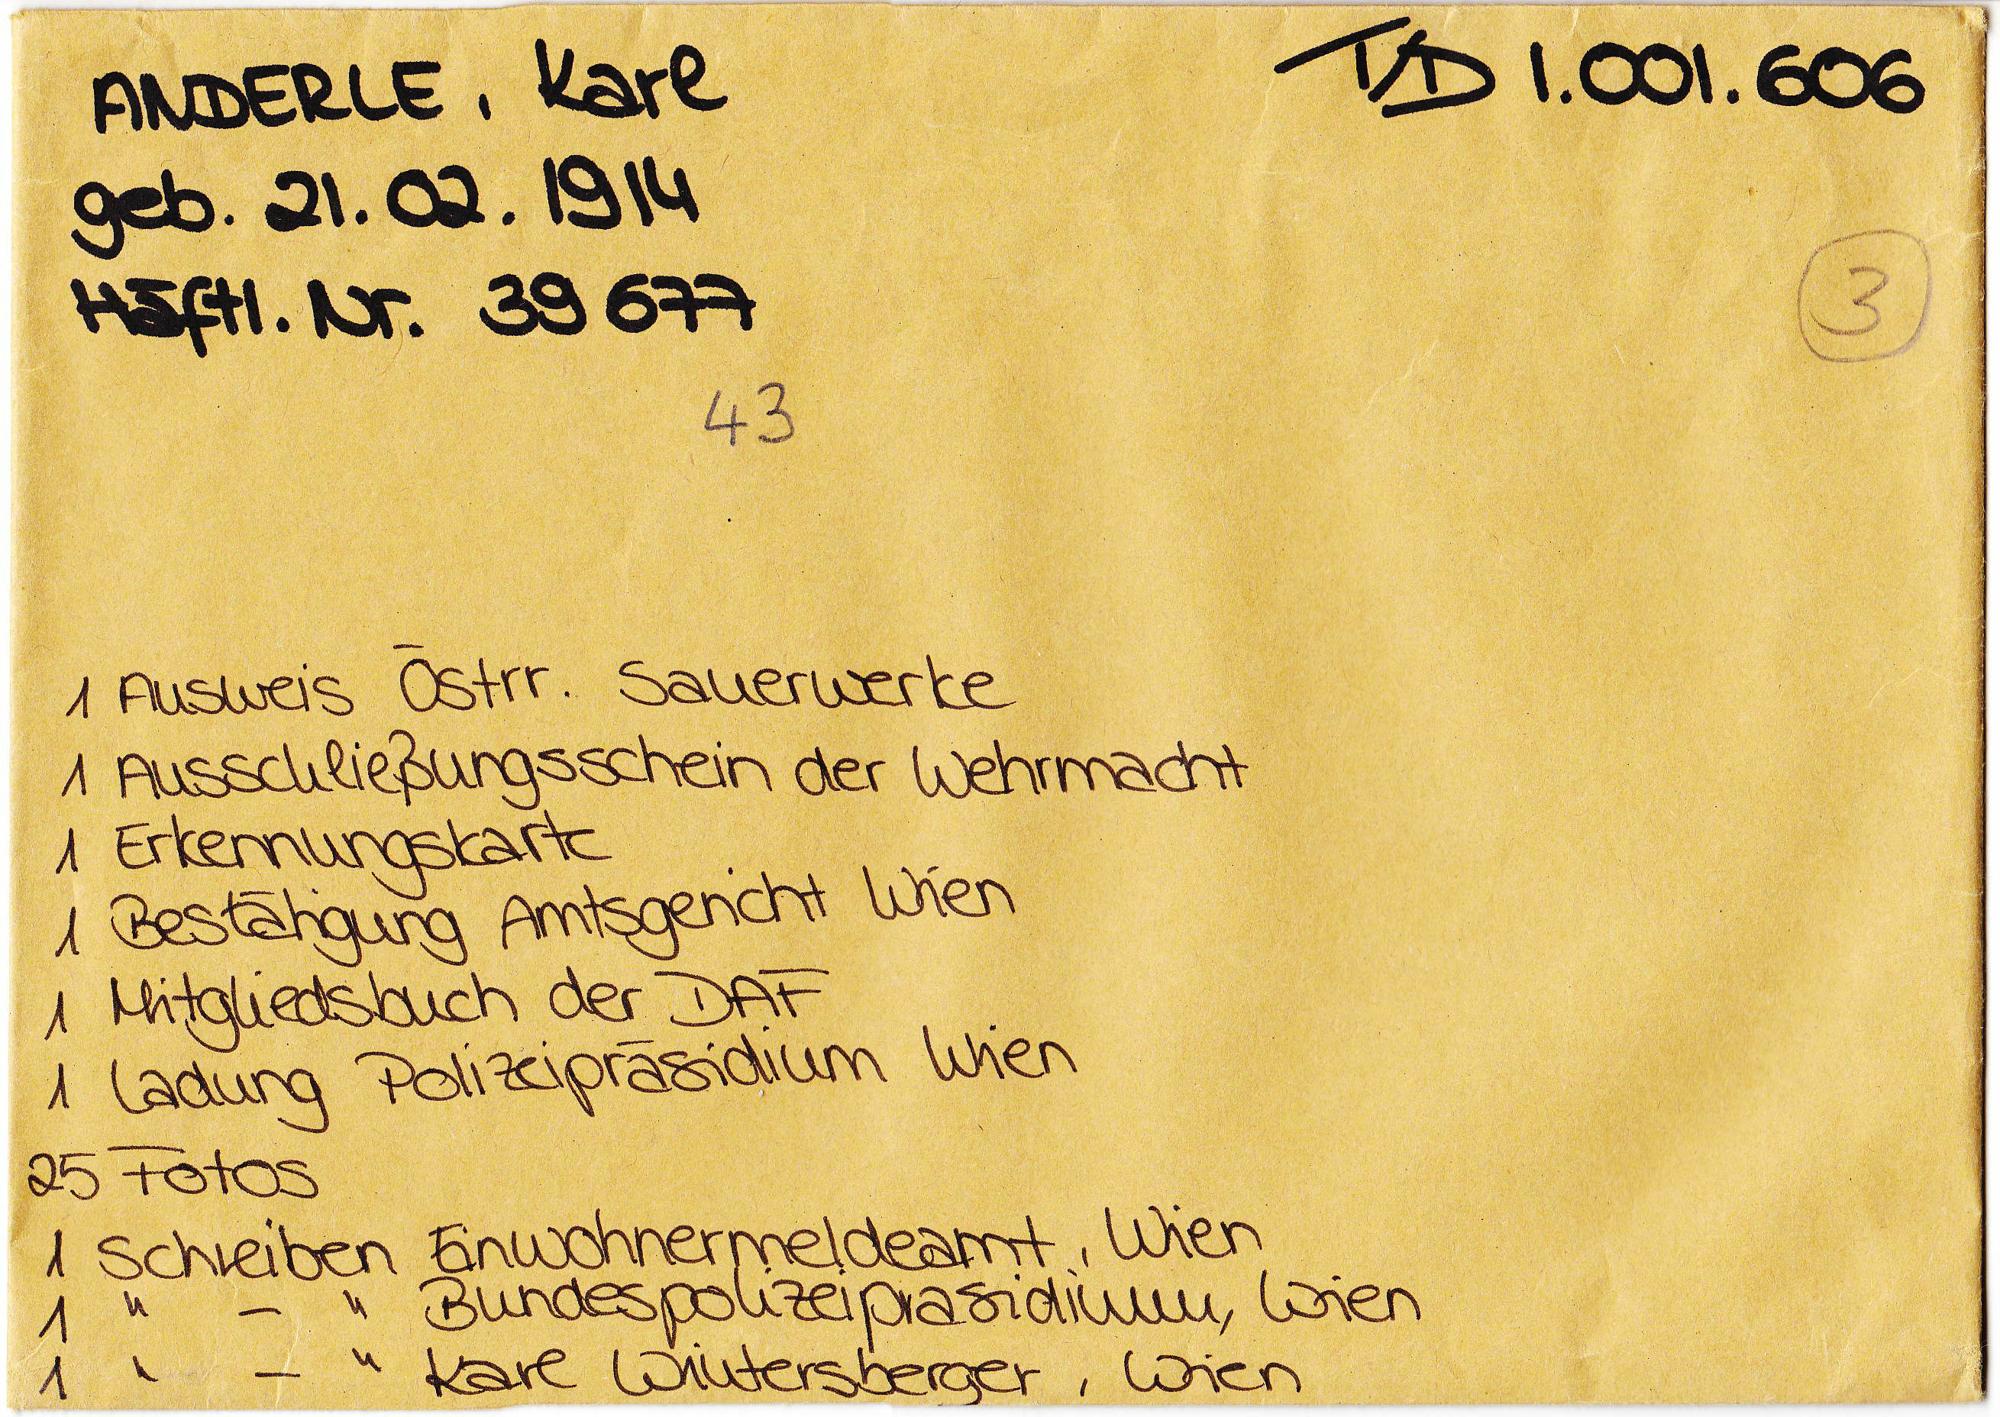 ANDERLE, Karl
T/D 1.001.606
geb. 21.02.1914
Häftl. Nr. 39677
3
43
1 Ausweis Östrr. Sauerwerke
1 Ausschließungsschein der Wehrmacht
1 Erkennungskarte
1 Bestätigung Amtsgericht Wien
1 Mitgliedsbuch der DAF
1 Ladung Polizeipräsidium Wien
25 Fotos
1 Schreiben Einwohnermeldeamt, Wien
1 " – " Bundespolizeipräsidium, Wien
1 " – " Karl Wintersberger, Wien